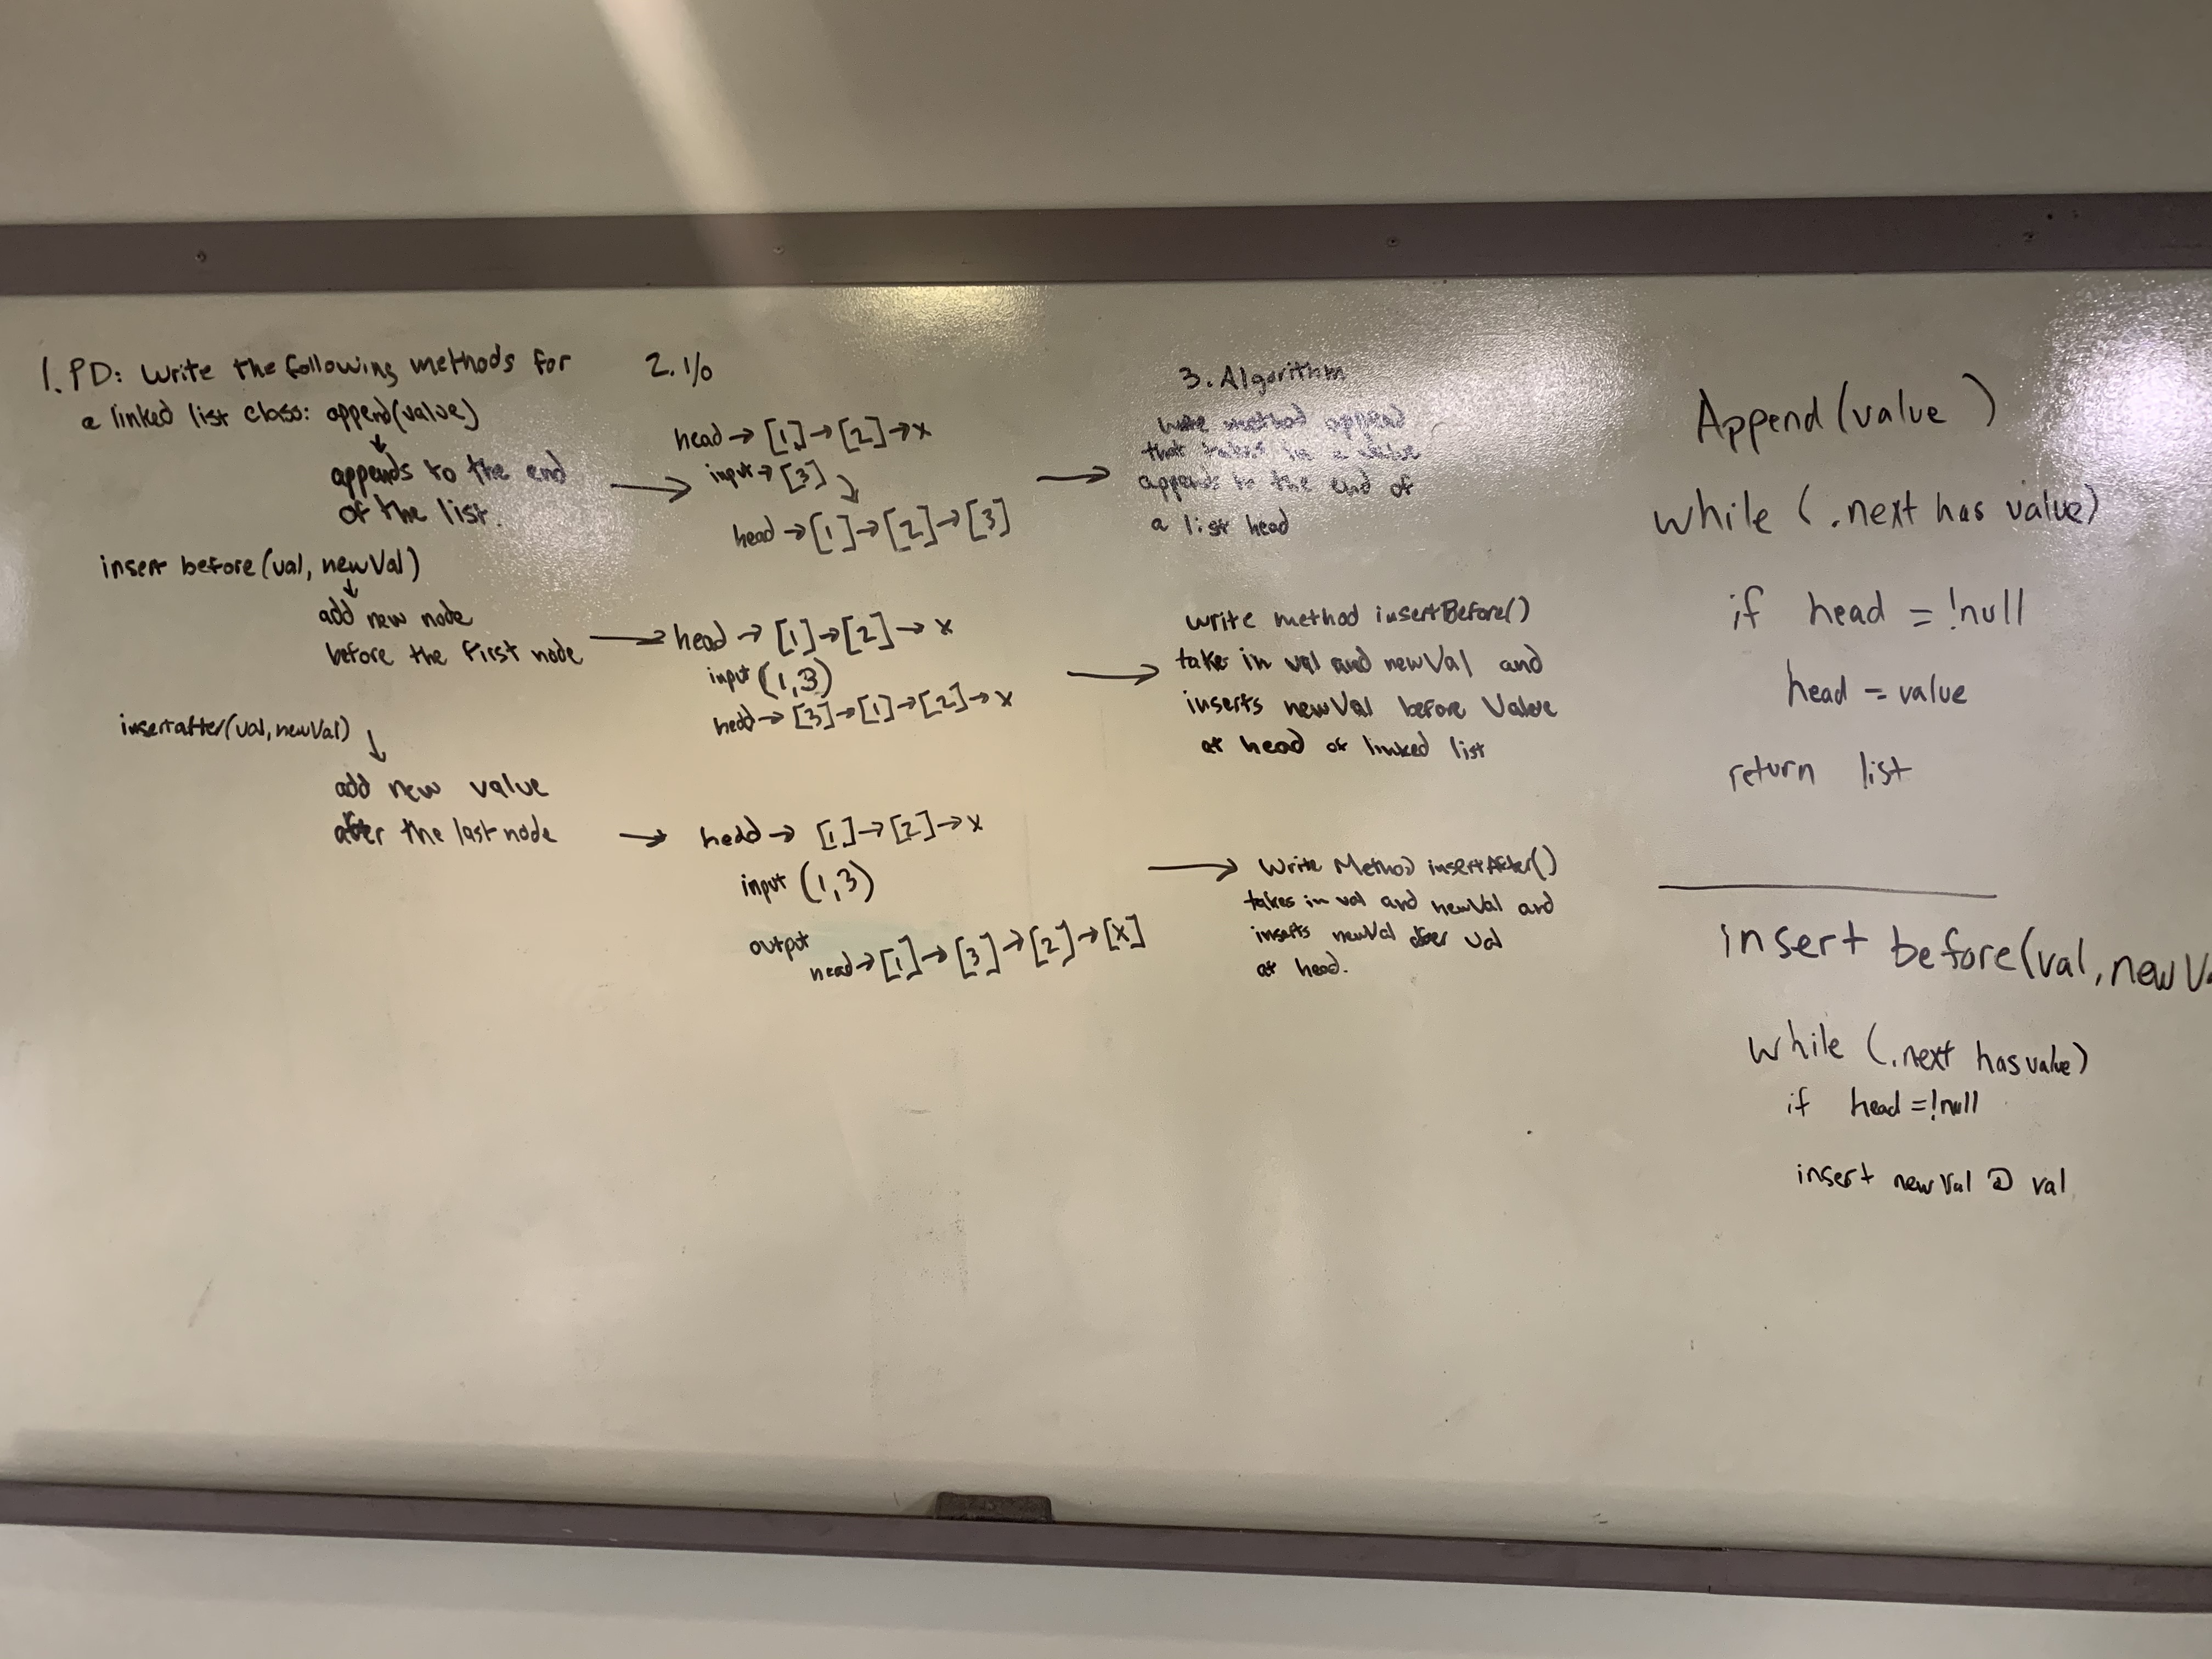 1. PD: Write the following methods for
a linked list class: append(value)
↓
appends to the end
of the list.
insert before(val, newVal)
↓
add new node
before the first node
insertafter(val, newVal)
↓
add new value
after the last node
2. I/O
head → [1] → [2] → x
input → [3]
head → [1] → [2] → [3]
head → [1] → [2] → x
input (1,3)
head → [3] → [1] → [2] → x
head → [1] → [2] → x
input (1,3)
output
head → [1] → [3] → [2] → [x]
3. Algorithm
write method append
that takes in a value
appends to the end of
a list head
write method insertBefore()
takes in val and newVal and
inserts newVal before Value
at head of linked list
Write Method insertAfter()
takes in val and newVal and
inserts newVal after val
at head.
Append(value)
while (.next has value)
if head = !null
head = value
return list
insert before(val, newVa
while (.next has value)
if head = !null
insert newVal @ val